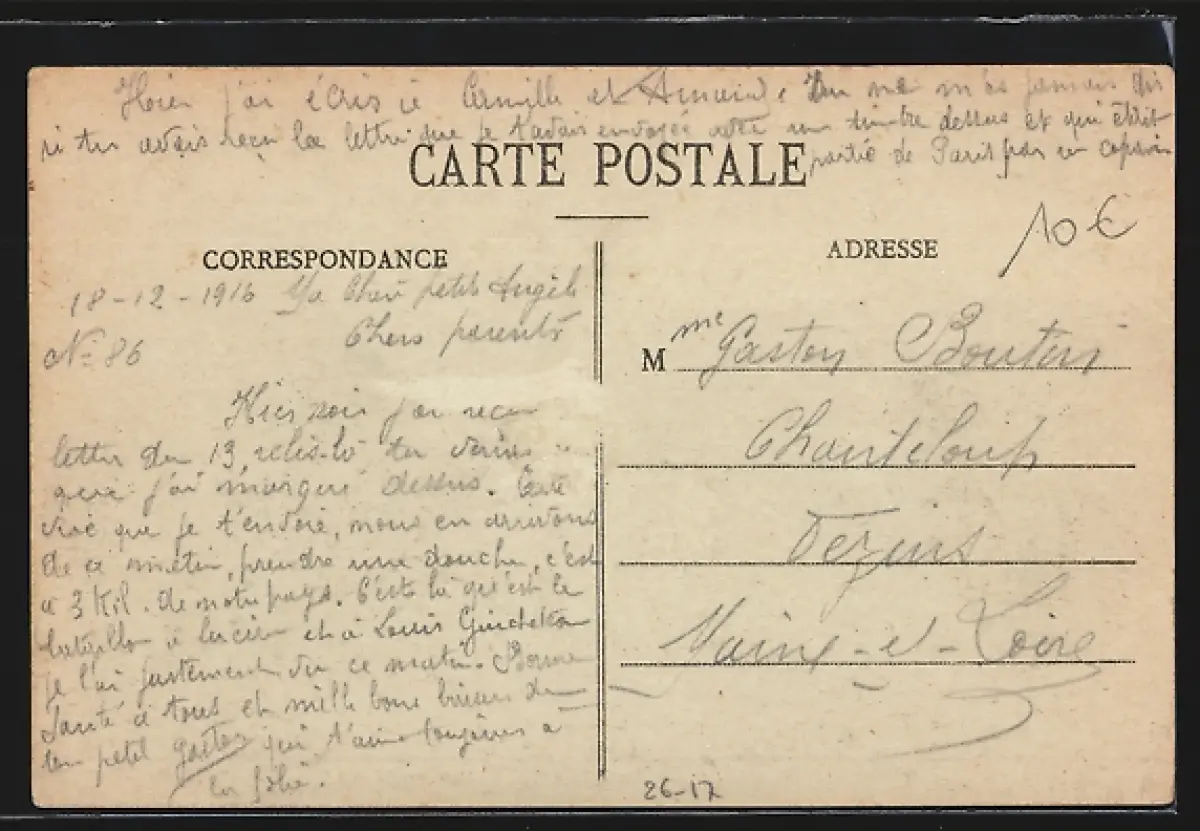 Hier j'ai écris à Camille et Armand. Tu ne m'as jamais dit
si tu avais reçu la lettre que je t'avais envoyée avec un timbre dessus et qui était
partie de Paris par un copain
CARTE POSTALE
10 €
CORRESPONDANCE
18-12-1916 Ma Cher petit Angèle
Chers parents
N° 86
Hier soir j'ai reçu
lettre du 13, relis-la tu verras
que j'ai marqué dessus. Carte
que je t'envoie, nous en arrivons
de ce matin, prendre une douche, c'est
à 3 Kil. de notre pays. C'est là qu'est le
bataillon à Lucien et à Louis
je l'ai justement vu ce matin. Bonne
Santé à tous et mille bons baisers de
ton petit Gaston qui t'aime toujours à
la folie.
ADRESSE
M me Gaston Boutin
Chanteloup
Vezins
Maine-et-Loire
26-17